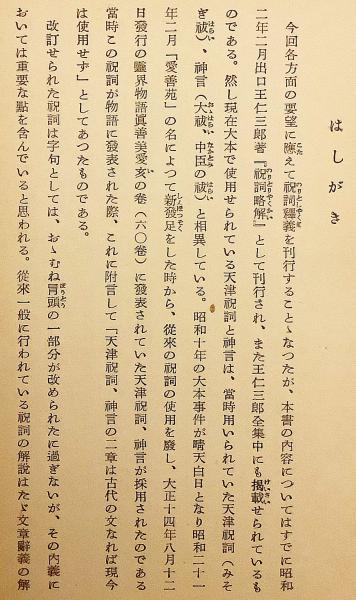 はしがき
今回各方面の要望に應えて祝詞釋義を刊行することゝなつたが、本書の内容についてはすでに昭和
二年二月出口王仁三郎著『祝詞略解』として刊行され、また王仁三郎全集中にも掲載せられているも
のである。然し現在大本で使用せられている天津祝詞と神言は、當時用いられていた天津祝詞（みそ
ぎ祓）、神言（大祓、中臣の祓）と相異している。昭和十年の大本事件が晴天白日となり昭和二十一
年二月『愛善苑』の名によつて新發足をした時から、從來の祝詞の使用を廢し、大正十四年八月十二
日發行の靈界物語眞善美愛亥の卷（六〇卷）に發表されていた天津祝詞、神言が採用されたのである
當時この祝詞が物語に發表された際、これに附言して「天津祝詞、神言の二章は古代の文なれば現今
は使用せず」としてあつたものである。
改訂せられた祝詞は字句としては、おゝむね冐頭の一部分が改められたに過ぎないが、その内義に
おいては重要な點を含んでいると思われる。從來一般に行われている祝詞の解説はたゞ文章辭義の解